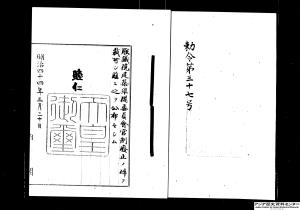 勅令第三十七号
朕議院建築準備委員会官制廃止ノ件ヲ
裁可シ茲ニ之ヲ公布セシム
睦仁
天皇
御璽
明治四十四年三月二十日
アジア歴史資料センター